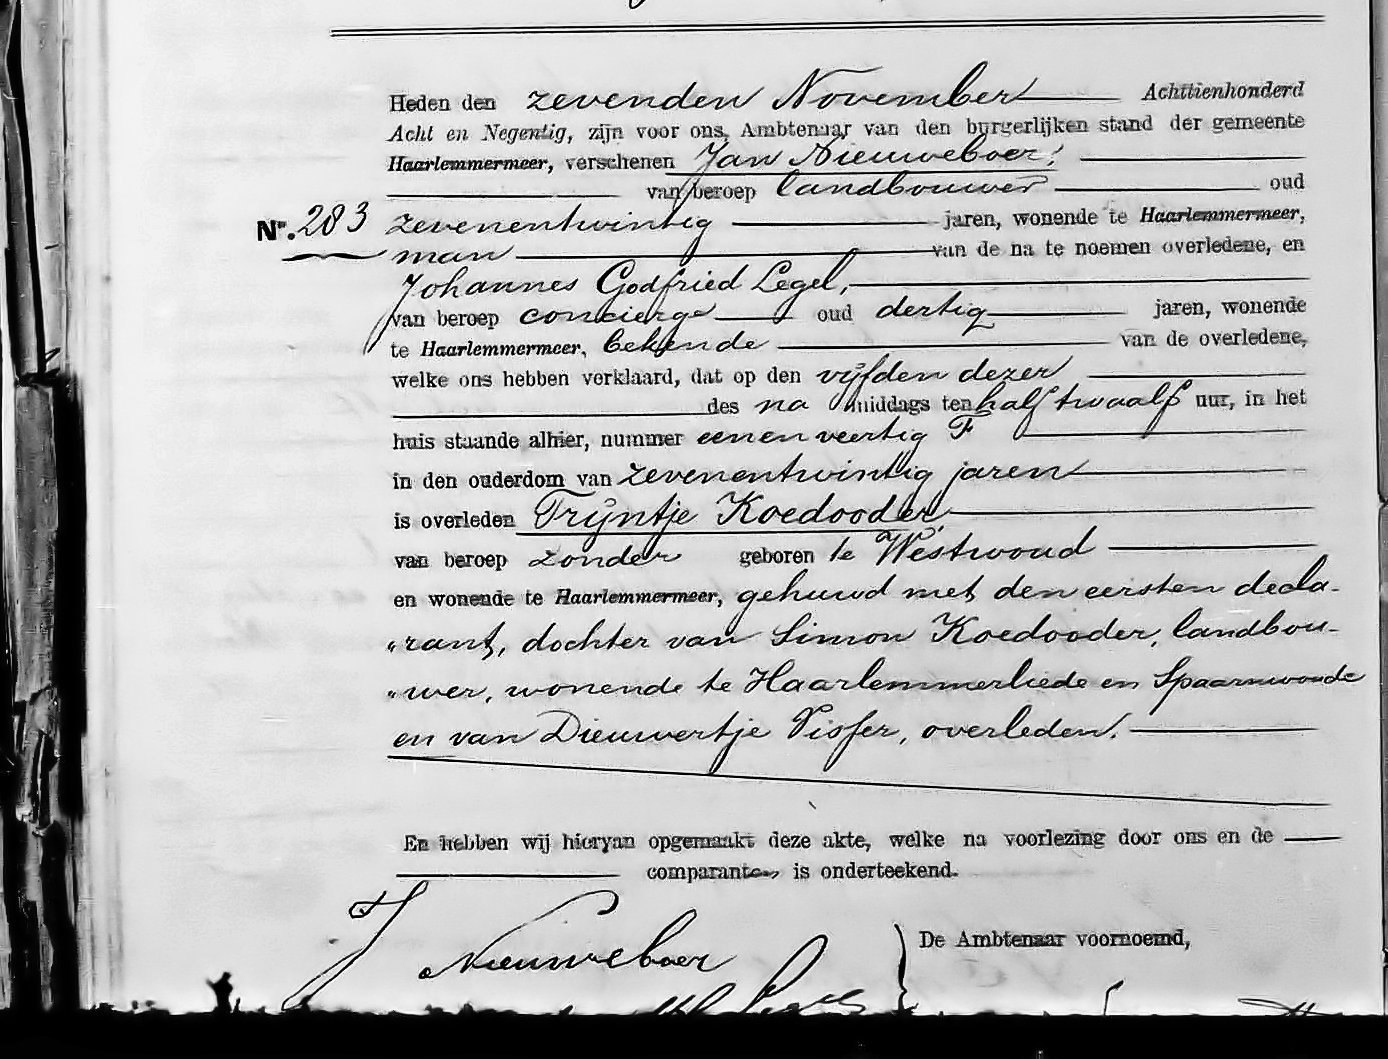 Heden den zevenden November Achttienhonderd
Acht en Negentig, zijn voor ons, Ambtenaar van den burgerlijken stand der gemeente
Haarlemmermeer, verschenen Jan Nieuweboer,
van beroep landbouwer oud
No. 283 zevenentwintig jaren, wonende te Haarlemmermeer,
man van de na te noemen overledene, en
Johannes Godfried Legel,
van beroep concierge oud dertig jaren, wonende
te Haarlemmermeer, bekende van de overledene,
welke ons hebben verklaard, dat op den vijfden dezer
des na middags ten half twaalf uur, in het
huis staande alhier, nummer eenenveertig F
in den ouderdom van zevenentwintig jaren
is overleden Trijntje Koedooder,
van beroep zonder geboren te Westwoud
en wonende te Haarlemmermeer, gehuwd met den eersten decla-
„rant, dochter van Simon Koedooder, landbou-
„wer, wonende te Haarlemmerliede en Spaarnwoude
en van Dieuwertje Visser, overleden.
En hebben wij hiervan opgemaakt deze akte, welke na voorlezing door ons en de
comparanten is onderteekend.
J Nieuweboer
De Ambtenaar voornoemd,